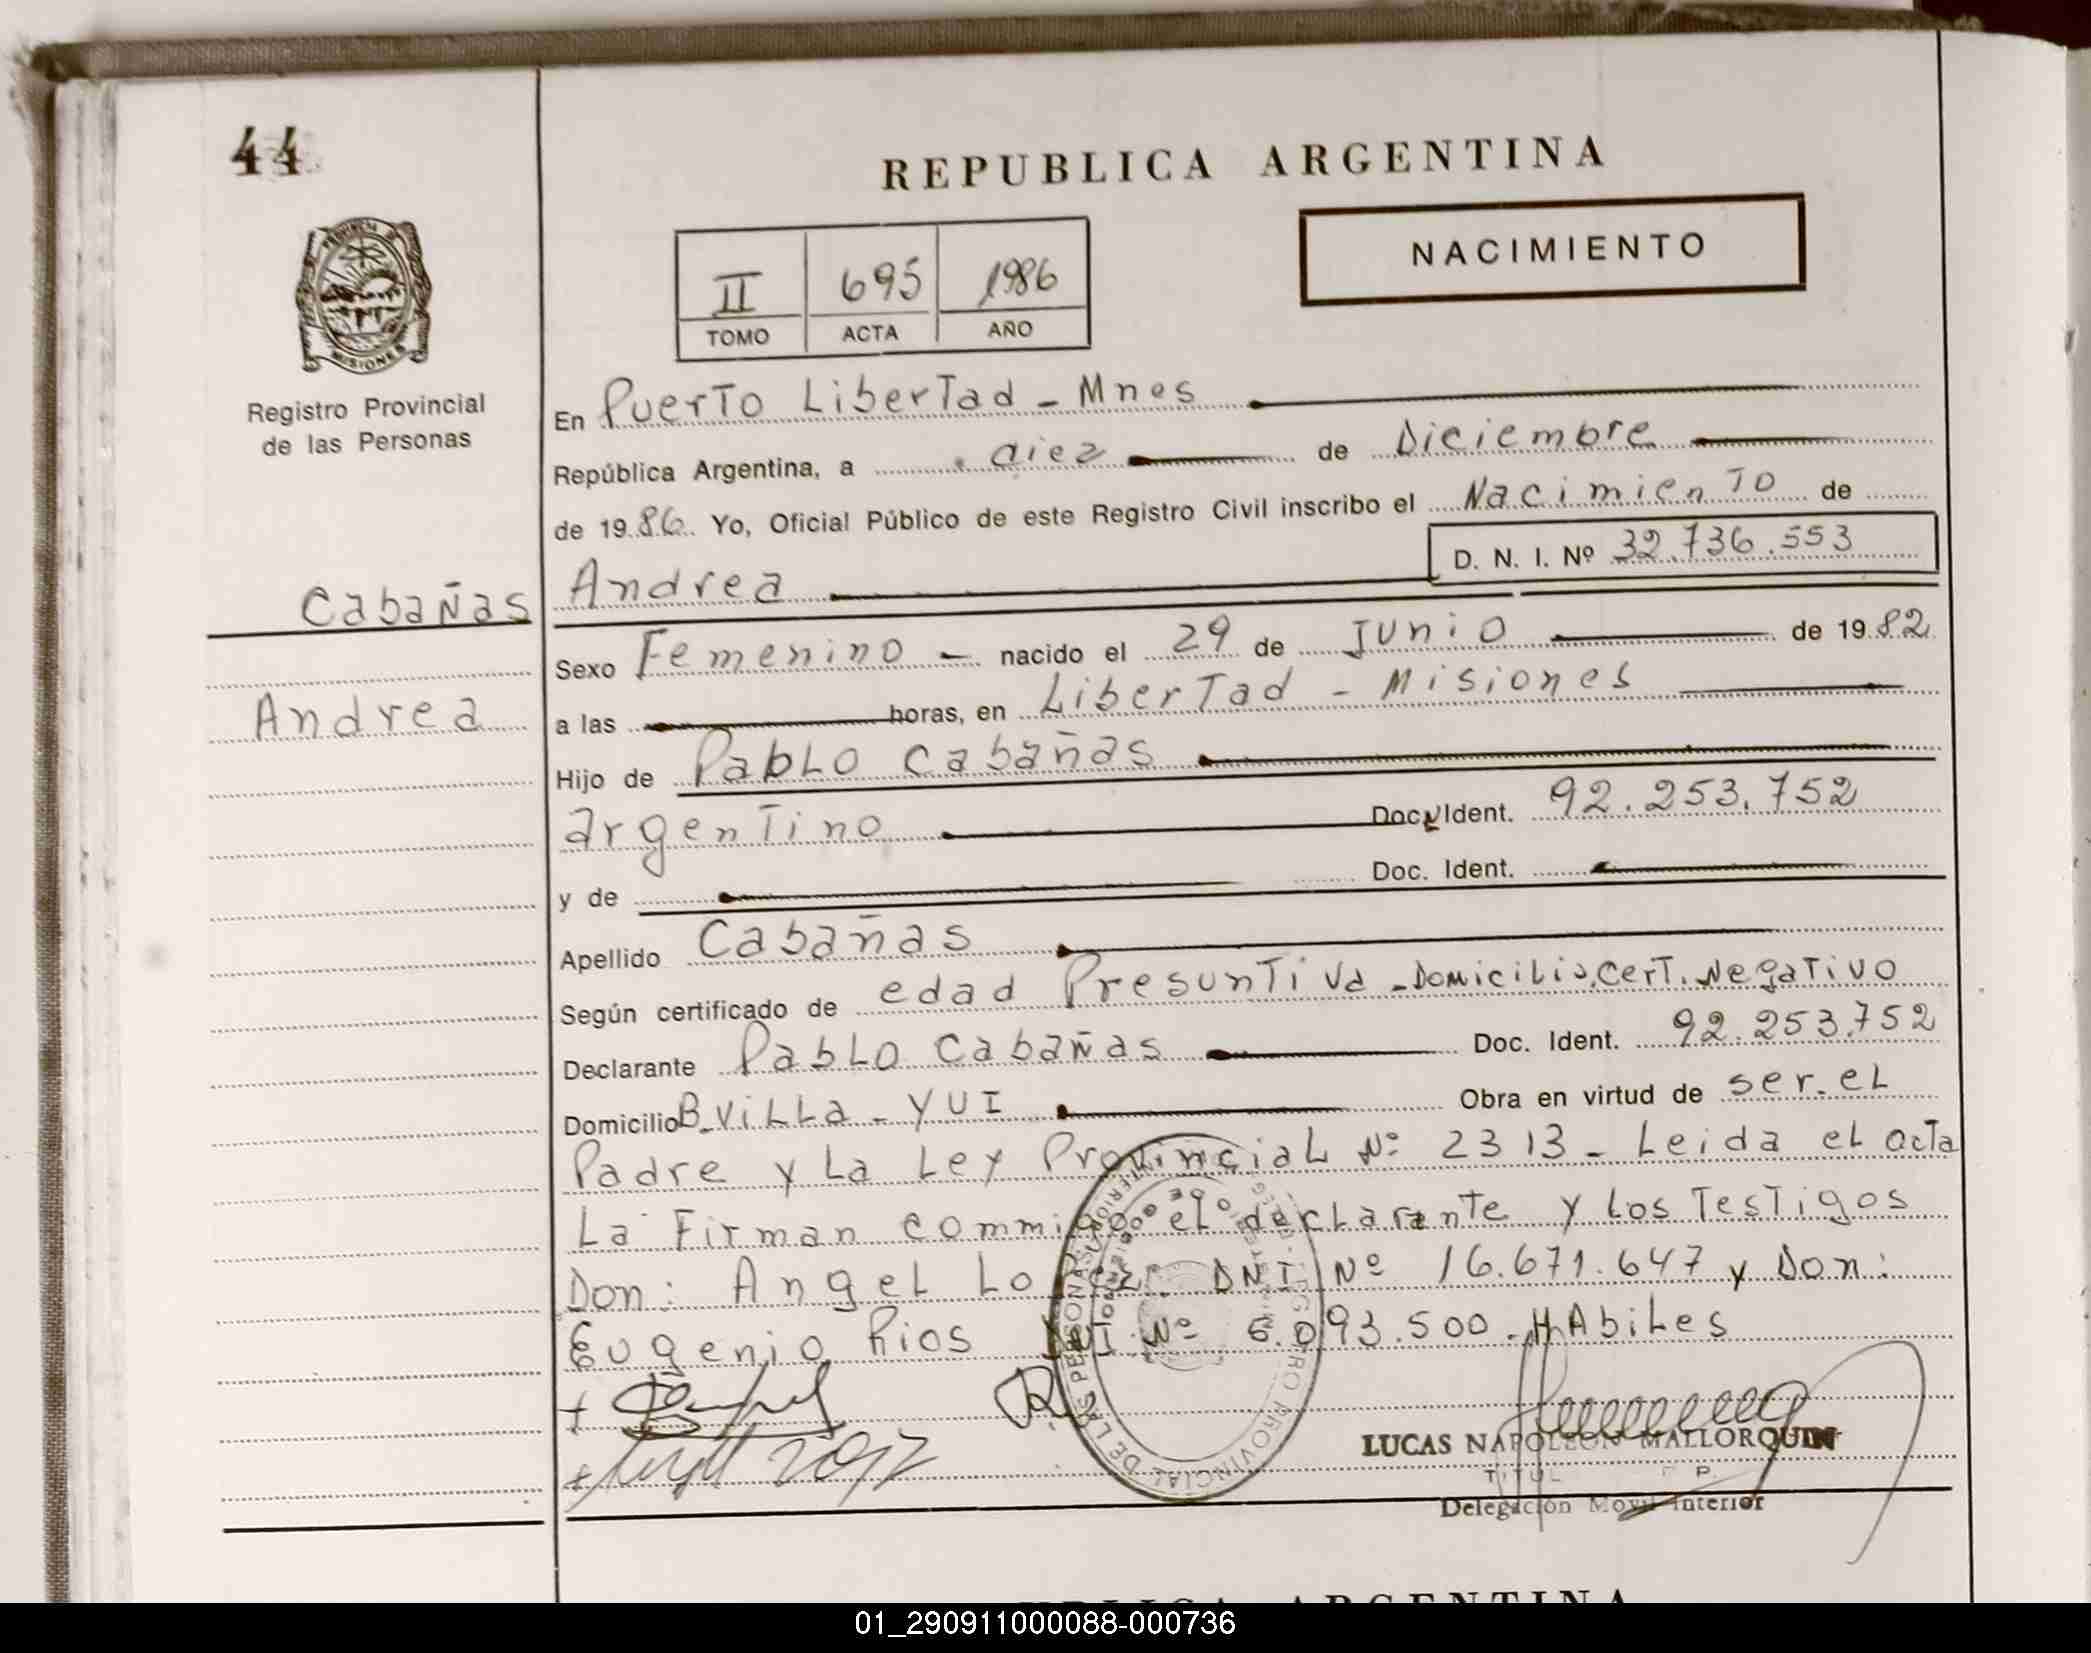 44
REPUBLICA ARGENTINA
NACIMIENTO
II 695 1986
TOMO ACTA AÑO
PROVINCIA DE MISIONES
Registro Provincial
de las Personas
En Puerto Libertad - Mnes
República Argentina, a diez de Diciembre
de 1986. Yo, Oficial Público de este Registro Civil inscribo el Nacimiento de
D. N. I. Nº 32.736.553
Cabañas Andrea
Sexo Femenino - nacido el 29 de Junio de 1982
Andrea
a las horas, en Libertad - Misiones
Hijo de Pablo Cabañas
argentino Doc. Ident. 92.253.752
y de Doc. Ident.
Apellido Cabañas
Según certificado de edad Presuntiva - Domicilio. Cert. Negativo
Declarante Pablo Cabañas Doc. Ident. 92.253.752
Domicilio B. Villa - YUI Obra en virtud de ser. el
Padre y La Ley Provincial Nº 2313 - Leida el acta
La Firman commigo el declarante y Los Testigos
Don: Angel Lopez. DNI Nº 16.671.647 y Don:
Eugenio Rios DNI Nº 6.093.500. HAbiles
REGISTRO PROVINCIAL DE LAS PERSONAS
LUCAS NAPOLEON MALLORQUIN
Delegación Movil Interior
REPUBLICA ARGENTINA
01_290911000088-000736